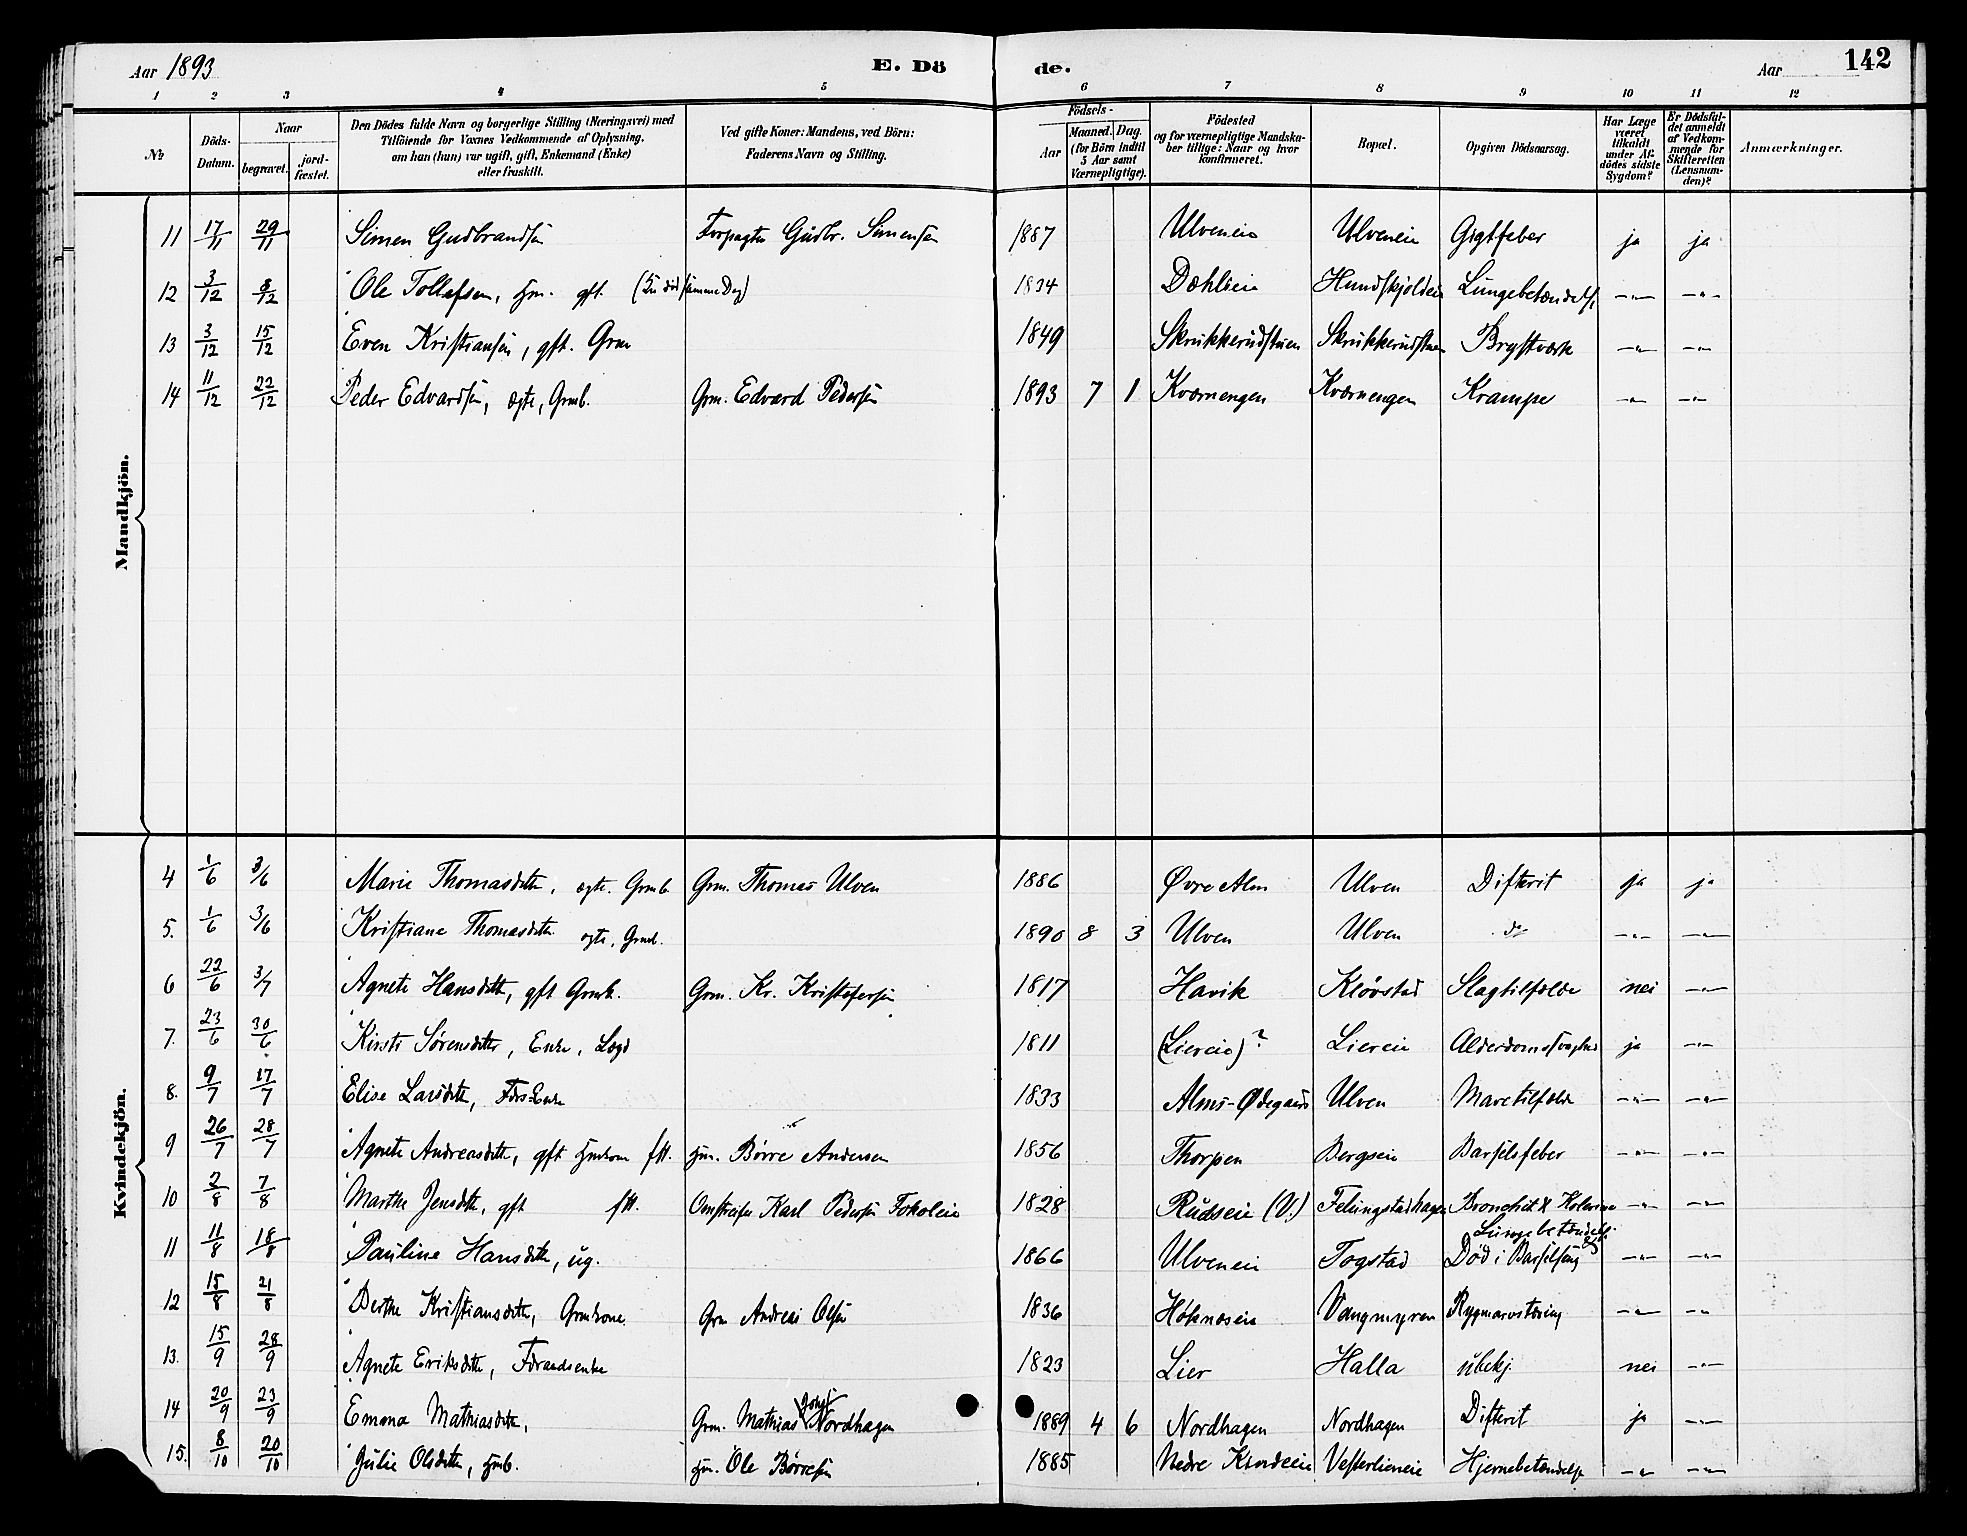 Aar 1893 E. Dö de. Aar 142
1 2 3 4 5 6 7 8 9 10 11 12
№ Döds-Datum. Naar begravet. jord-fæstet. Den Dödes fulde Navn og borgerlige Stilling (Næringsvei) med Tilföiende för Voxnes Vedkommende af Oplysning, om han (hun) var ugift, gift, Enkemand (Enke) eller fraskilt. Ved gifte Koner: Mandens, ved Börn: Faderens Navn og Stilling. Födsels- Aar Maaned. Dag. (for Börn indtil 3 Aar samt Værnepligtige). Födested og for værnepligtige Mandska-ber tillige: Naar og hvor konfirmeret. Bopæl. Opgiven Dödsaarsag. Har Læge været tilkaldt under Af-dödes sidste Sygdom? Er Dödsfal-det anmeldt af Vedkom-mende for Skifteretten (Lensman-den)? Anmærkninger.
Mandkjön.
11 17/11 29/11 Simen Gudbrandsen Forpagter Gudbr. Simensen 1887 Ulveneie Ulveneie Gigtfeber ja ja
12 3/12 8/12 Ole Tollefsen, hjm. gft. 1834 Dæhlieie Lungebetændelse —"— —"—
13 3/12 15/12 Even Kristiansen, gft. Grm 1849 Skrukkerudstuen Skrukkerudstuen Brystværk —"— —"—
14 11/12 22/12 Peder Edvardsen, ægte, Grmb. Grm. Edvard Pedersen 1893 7 1 Kværnengen Kværnengen Krampe —"— —"—
Kvindekjön.
4 1/6 3/6 Marie Thomasdtr, ægte. Grmb Grm. Thomas Ulven 1886 Øvre Alm Ulven Difterit ja ja
5. 1/6 3/6 Kristiane Thomasdtr. ægte, Grmb. 1890 8 3 Ulven Ulven do —"— —"—
6 22/6 3/7 Agnete Hansdtr, gft Grmk. Grm. Kr. Kristofersen 1817 Havik Kløvstad Slagtilfælde nei —"—
7. 23/6 30/6 Kirsti Sørensdtr, Enke, Lægd 1811 (Liereie)? Liereie Alderdomssvaghed ja —"—
8. 9/7 17/7 Elise Larsdtr, 1833 Alms-Ødegaard Ulven Mavetilfælde —"— —"—
9 26/7 28/7 Agnete Andreasdtr, gft hjmkone ftt. hjm. Børre Andersen 1856 Thorpen Bergseie Barselsfeber —"— —"—
10 2/8 7/8 Marthe Jensdtr, gft ftt. Omstreifer Karl Pedersen 1828 Rudseie (V.) Bronchit & Kolerine —"— —"—
11 11/8 18/8 Pauline Hansdtr, ug. 1866 Ulveneie Togstad Lungebetændelse Død i Barselseng —"— —"—
12 15/8 21/8 Berthe Kristiansdtr, Grmkone Grm Andreas Olsen 1836 Høknæseie Vangmyren Rygmarvstæring —"— —"—
13. 15/9 28/9 Agnete Eriksdtr, Føraadsenke 1823 Lier Halla ubekj. nei —"—
14 20/9 23/9 Emma Mathiasdtr, Grm. Mathias Nordhagen 1889 4 6 Nordhagen Nordhagen Difterit ja —"—
15. 8/10 20/10 Julie Olsdtr, hjmb. hjm. Ole Børresen 1885 Nedre Kindeeie Vesterlieneie Hjernebetændelse —"— —"—